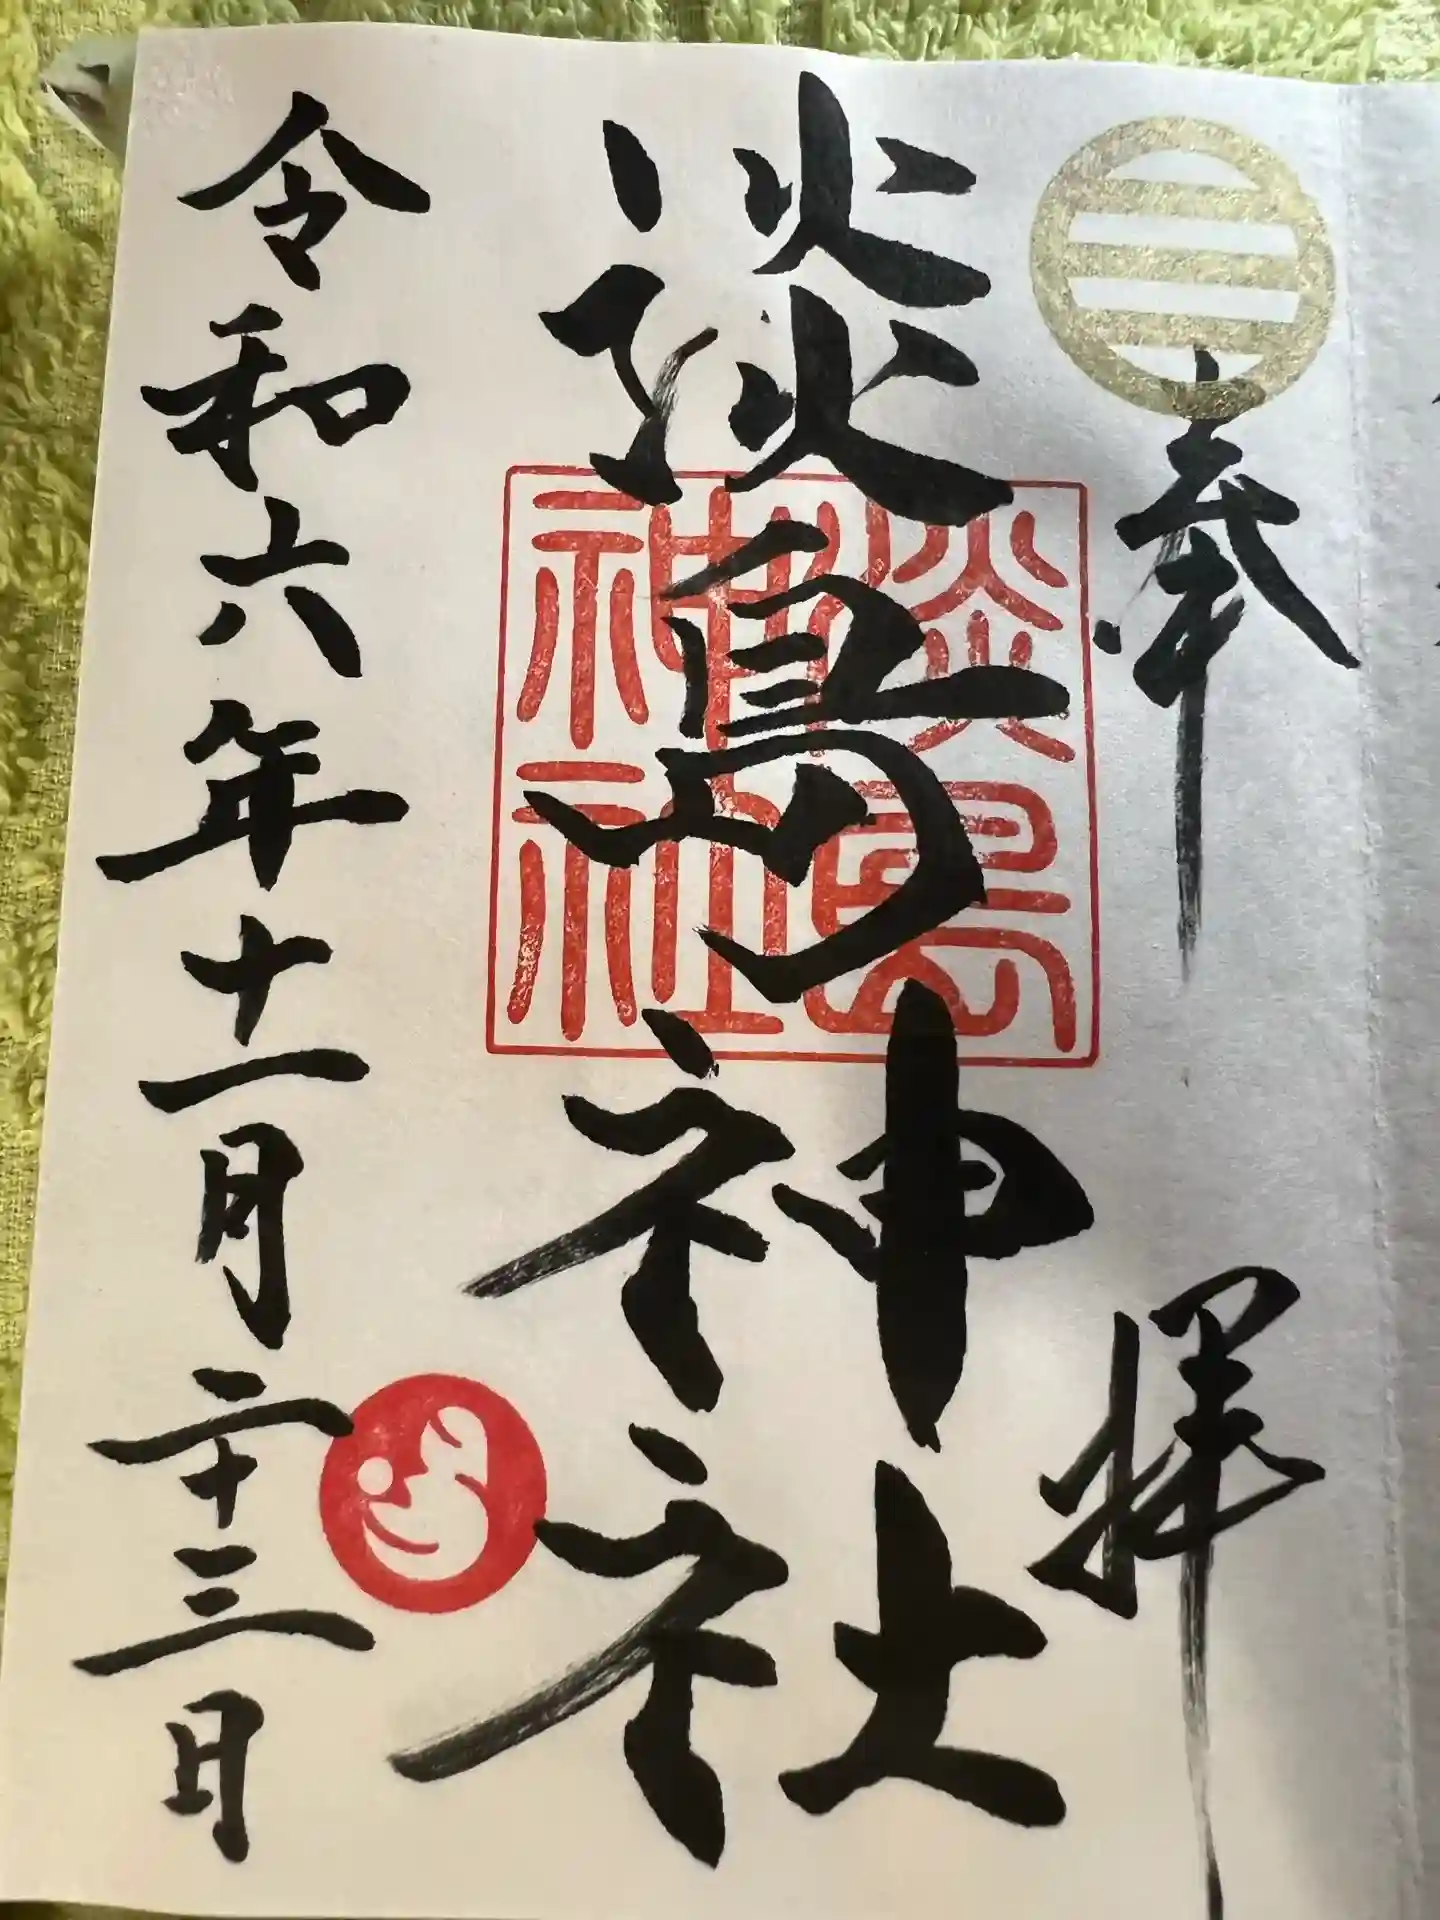 奉拝
淡島神社
淡島神社
令和六年十一月二十三日